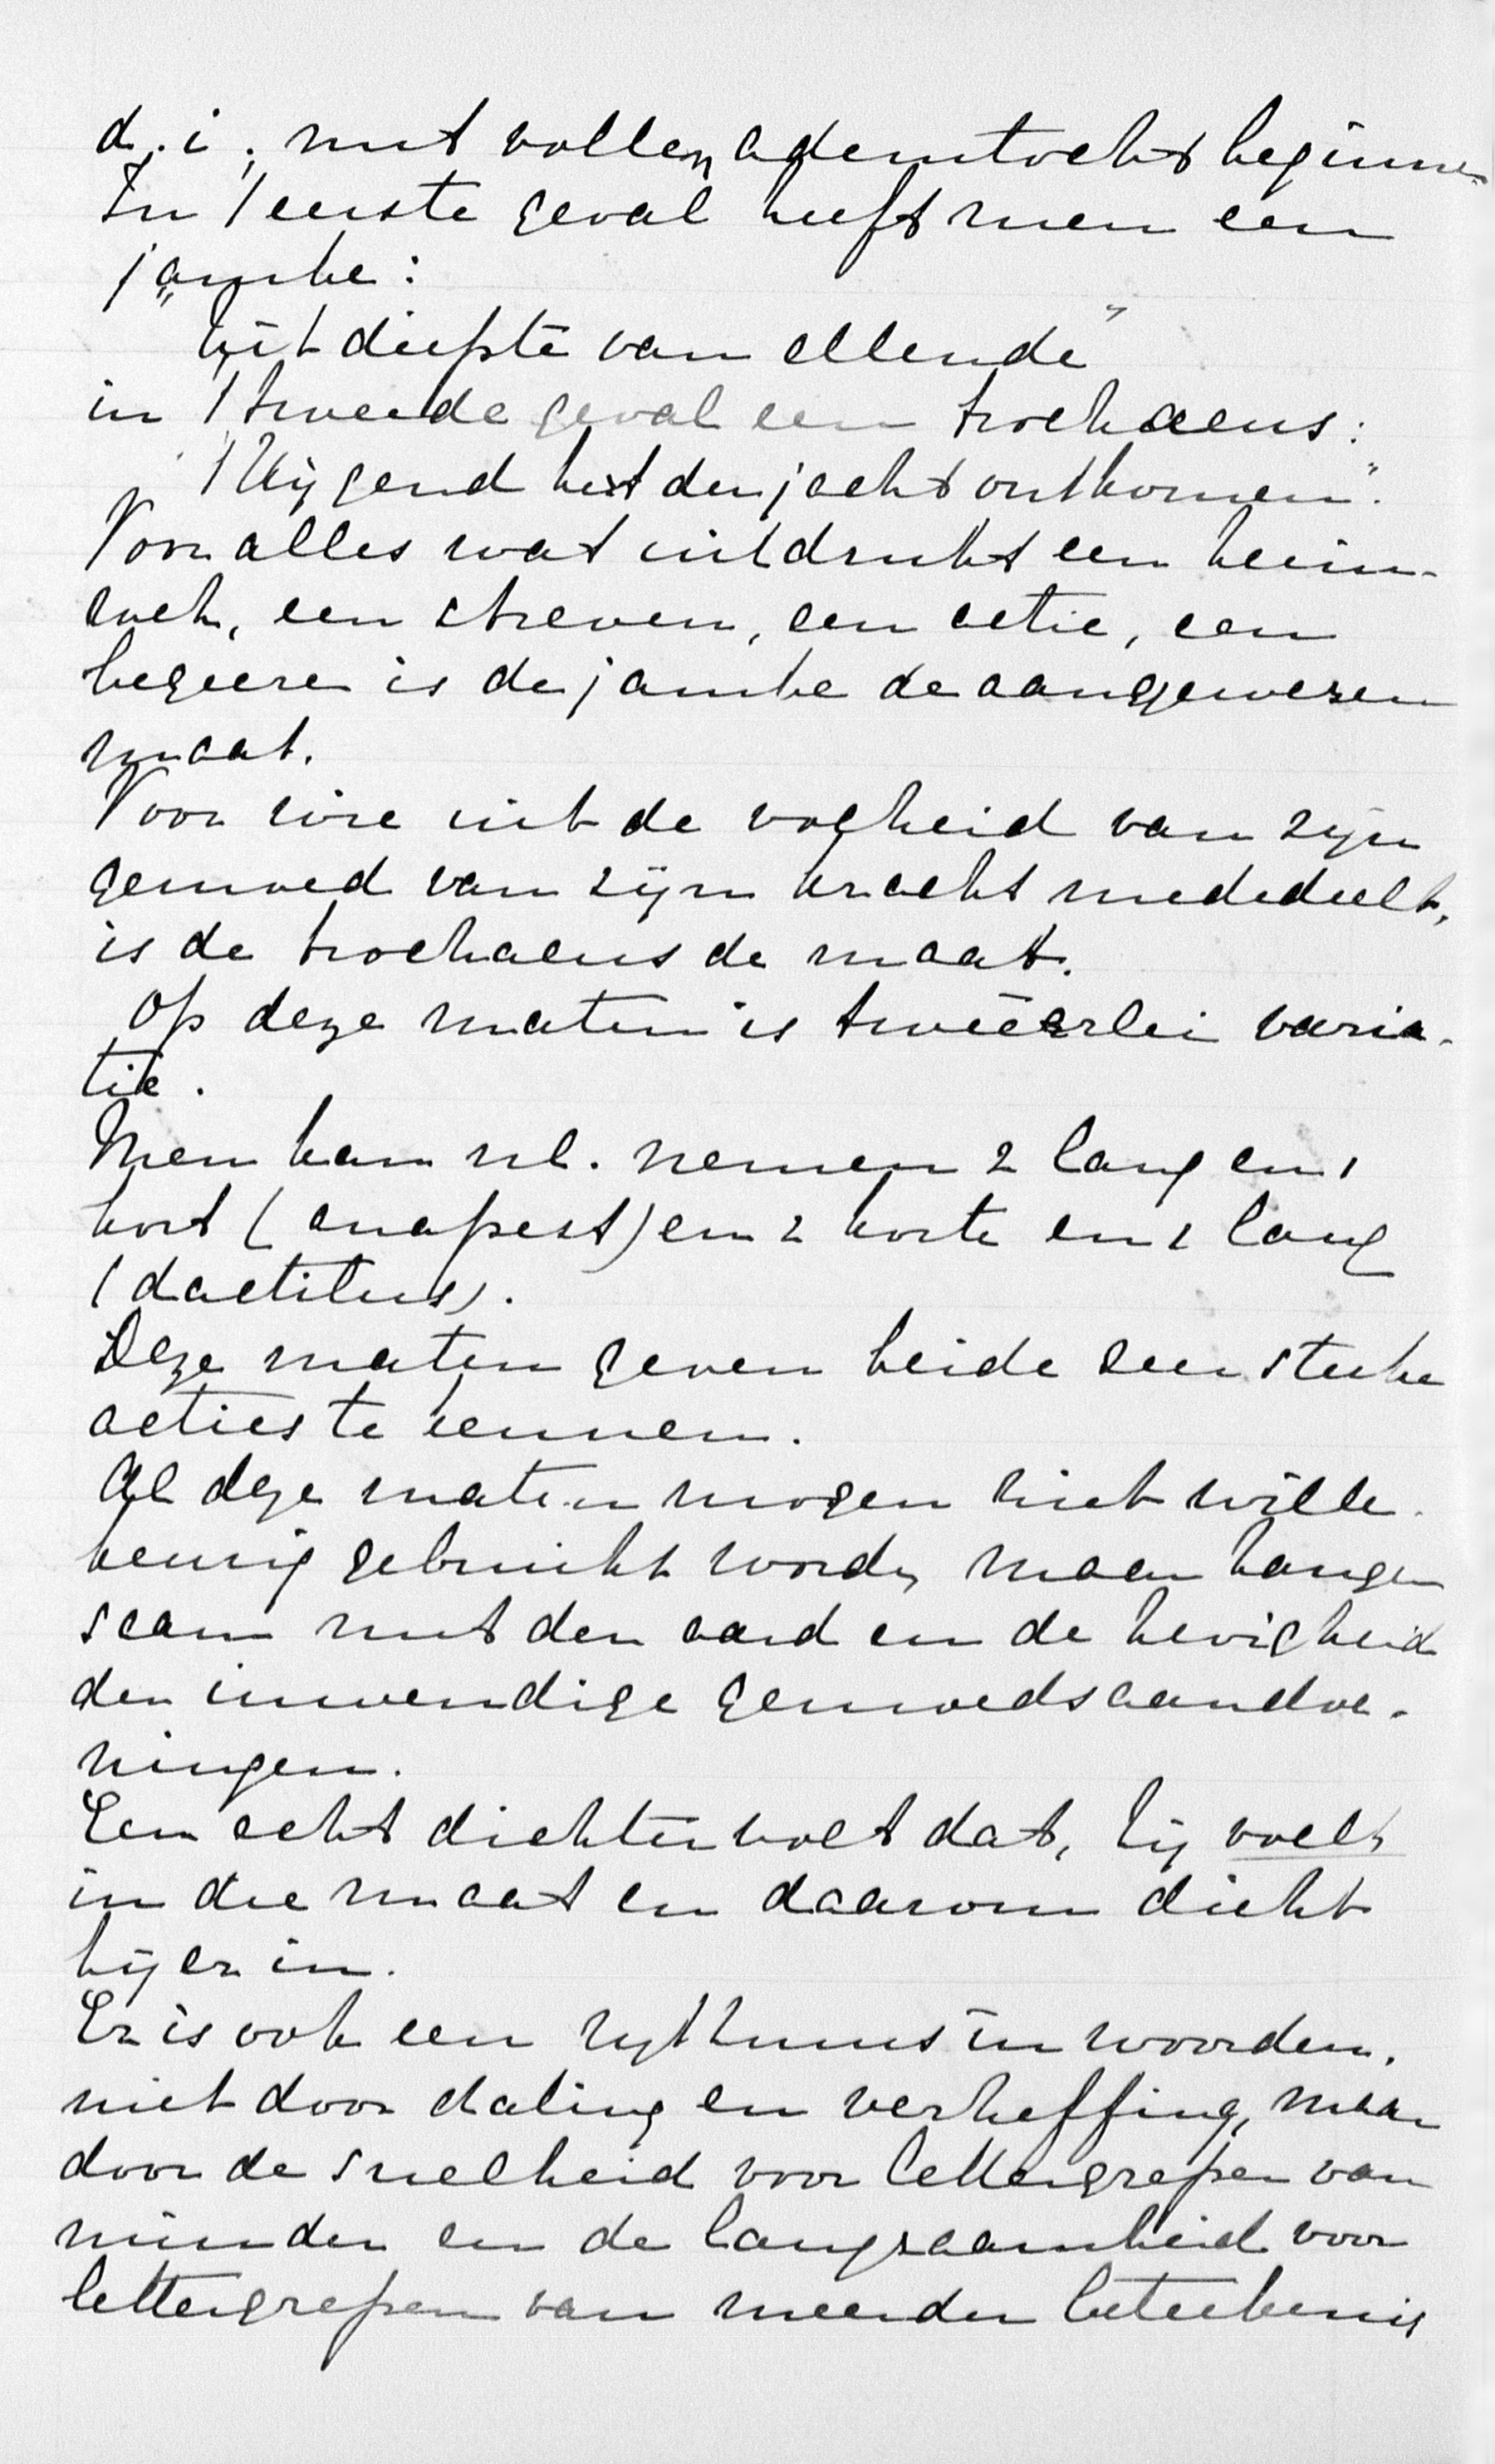 d.i. met vollen ademtocht beginnen
In 't eerste geval heeft men een
jambe:
"Uit diepte van ellende"
in 't tweede geval een trochaeus:
"'t Hijgend hert der jacht ontkomen".
Voor alles wat uitdrukt een heim-
weh, een streven, een actie, een
begeeren is de jambe de aangewezen
maat.
Voor wie uit de volheid van zijn
gemoed van zijn kracht mededeelt,
is de trochaeus de maat.
Op deze maten is tweeërlei varia-
tie.
Men kan nl. nemen 2 lang en 1
kort (anapest) en 2 korte en 1 lang
(dactilus).
Deze maten geven beide een sterke
acties te kennen.
Al deze maten mogen niet wille-
keurig gebruikt worden maar hangen
saam met den aard en de hevigheid
der inwendige gemoedsaandoe-
ningen.
Een echt dichter voelt dat, hij voelt
in die maat en daarom dicht
hij er in.
Er is ook een rythmus in woorden,
niet door daling en verheffing, maar
door de snelheid voor lettergrepen van
minder en de langzaamheid voor
lettergrepen van meerder beteekenis